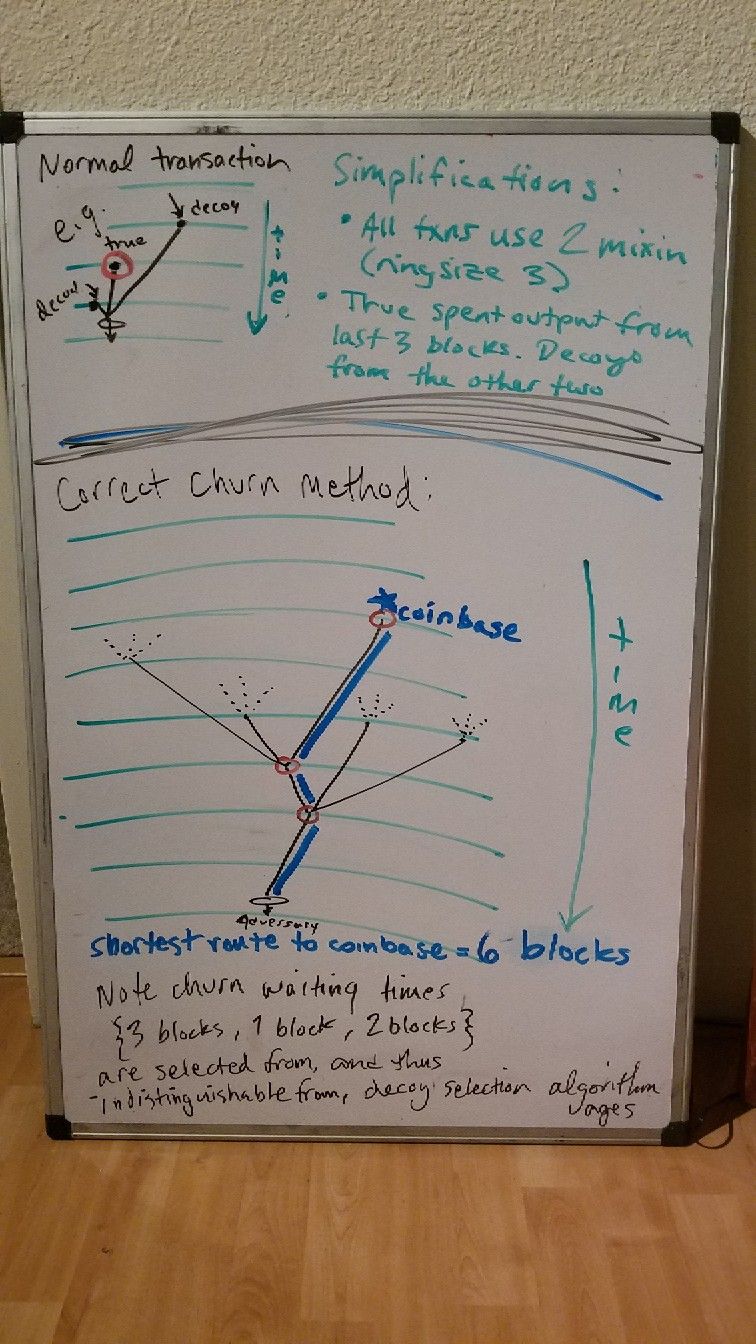 Normal transaction
e.g.
decoy
true
decoy
time
Simplifications:
• All txns use 2 mixin
(ringsize 3)
• True spent output from
last 3 blocks. Decoys
from the other two
Correct Churn Method:
coinbase
time
Adversary
shortest route to coinbase = 6 blocks
Note churn waiting times
{3 blocks, 1 block, 2 blocks}
are selected from, and thus
indistinguishable from, decoy selection algorithm
ages